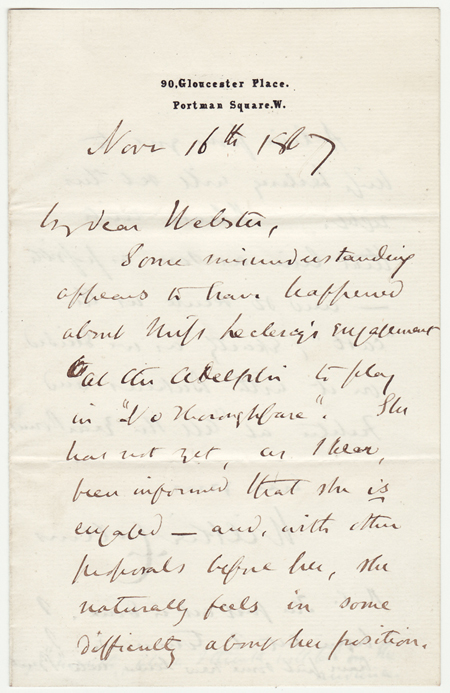 90, Gloucester Place.
Portman Square. W.
Novr 16th 1867
My dear Webster,
Some misunderstanding
appears to have happened
about Miss Leclercq's engagement
at the Adelphi to play
in "No Thoroughfare". She
has not yet, as I hear,
been informed that she is
engaged — and, with other
proposals before her, she
naturally feels in some
difficulty about her position.